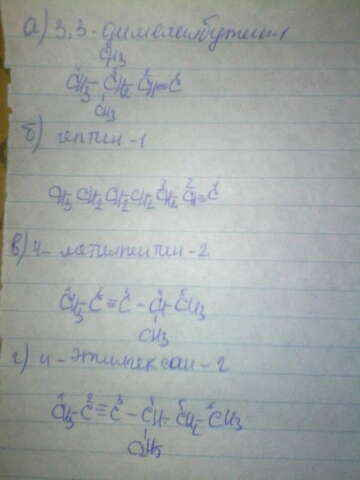 а) 3,3-диметилбутин-1
CH3
CH3-CH2 CH≡C
CH3
б) гептин-1
CH3-CH2 CH2 CH2 CH2 CH≡C
в) 4-метилпентин-2
CH3-C≡C-CH-CH3
CH3
г) 4-этилгексан-2
CH3-C≡C-CH-CH2-CH3
C2H5